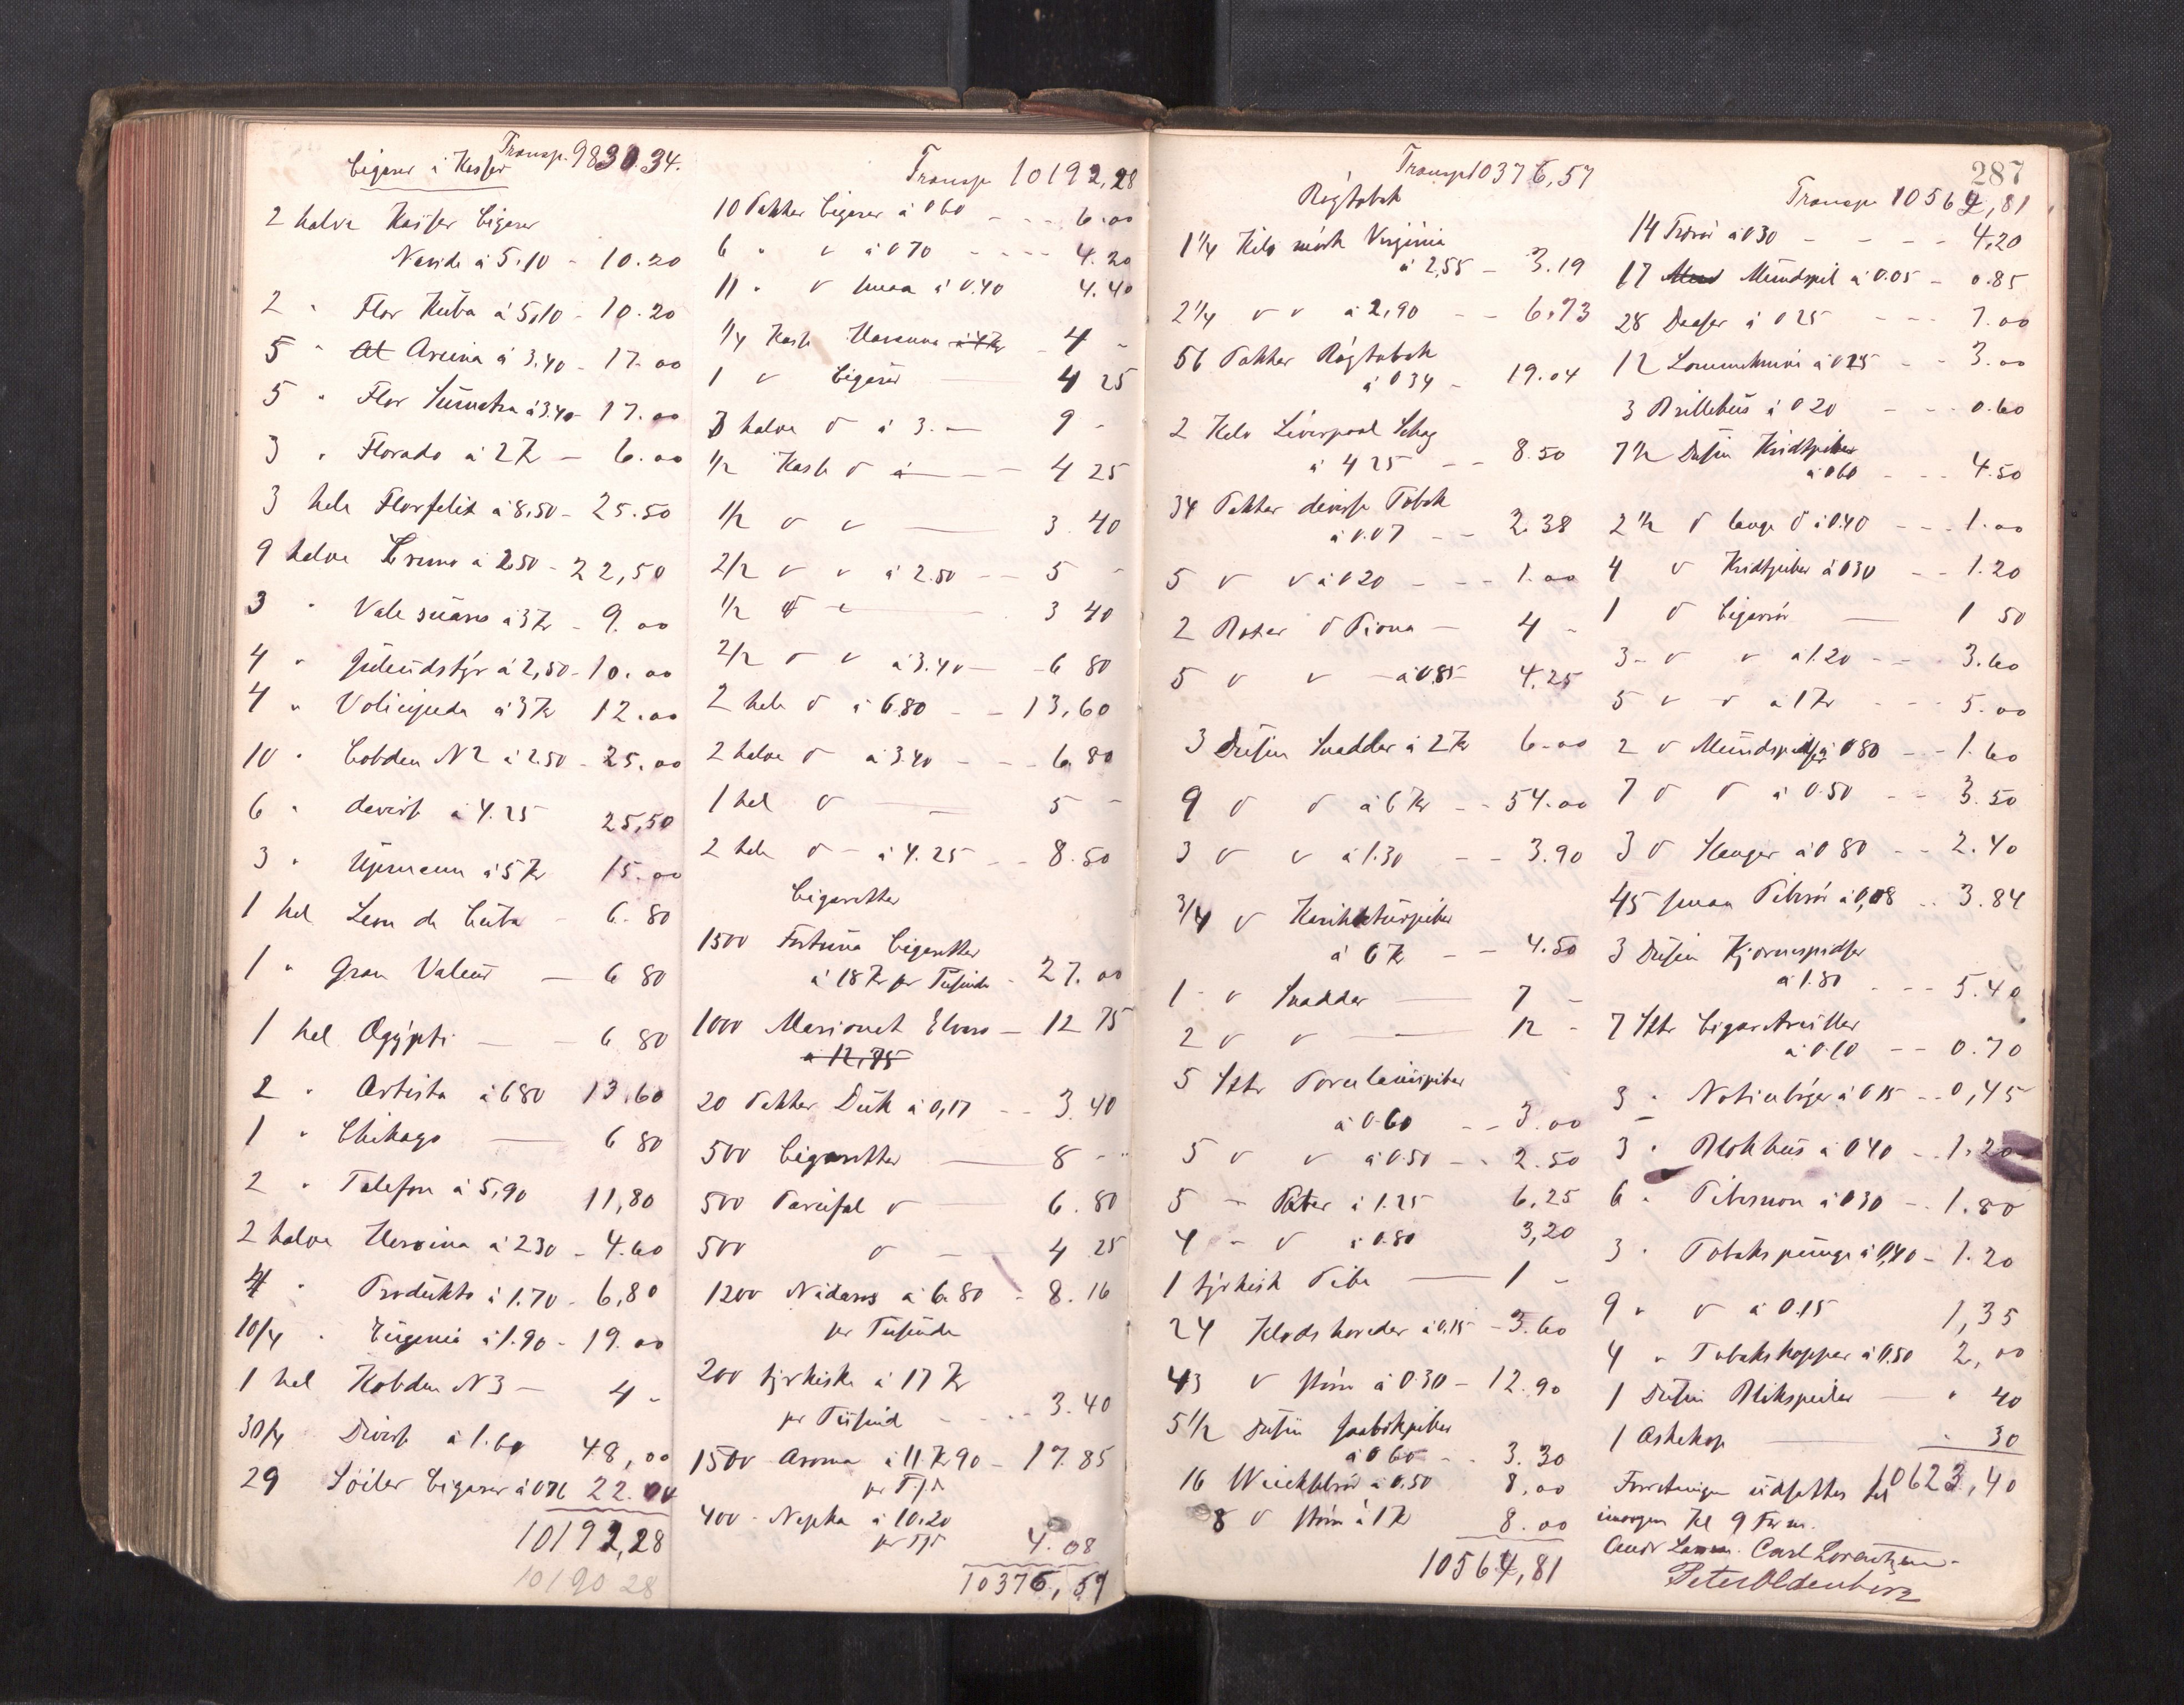 Transp. 9830.34.
Cigarer i Kasser
2 halve Kasser Cigarer
Naride à 5.10 - 10.20
2 " Flor Kuba à 5,10 - 10.20
5 " Areina à 3.40 - 17.00
5 " Flor Sumatra à 3.40 - 17.00
3 " Florado à 2 Kr - 6.00
3 hele Florfelix à 8.50 - 25.50
9 halve à 2.50 - 22,50
3 " à 3 Kr - 9.00
4 " à 2,50 - 10.00
4 " à 3 Kr 12.00
10 " Cobden N 2 à 2.50 - 25.00
6 " diverse à 4.25 25,50
3 " Upmann à 5 Kr 15.00
1 hel Leon de Cuba - 6.80
1 " Gran Valeur - 6 80
1 hel Ogÿpti - - 6 80
2 " Artista à 6 80 13.60
1 " Chikago - 6 80
2 " Telefon à 5,90 11,80
2 halve Heroina à 2 30 - 4.60
4 " Produkto à 1.70 - 6,80
10/4 " Eugenia à 1.90 - 19.00
1 hel Kobden N 3 - 4 -
30/4 Divers à 1.60 48,00
29 Söiler Cigarer à 0 76 22.04
10192,28
10190 28
Transp 10192,28
10 Pakker Cigarer à 0 60 - - - 6.00
6 " v à 0 70 - - - - 4.20
11 " v smaa à 0.40 4.40
1/4 Kasse Havanna - 4 -
1 v Cigarer - 4 25
3 halve v à 3. - 9 -
1/2 Kasse v - 4 25
1/2 v v - 3.40
2/2 v v à 2.50 - - 5 -
1/2 v - 3 40
2/2 v v à 3.40 - 6 80
2 hele v à 6.80 - - 13,60
2 halve v à 3.40 - - - 6.80
1 hel v - 5 -
2 hele v - à 4.25 - - 8.50
Cigaretter
1500 Fortuna Cigaretter
à 18 Kr pr Tusinde - 27.00
1000 Marionet Elvaro - 12 75
à 12,75
20 Pakker Duk à 0,17 - - 3.40
500 Cigaretter - 8 - -
500 Parcifal v - 6.80
500 v - 4 25
1200 Nidaros à 6.80 - 8.16
pr Tusinde
200 tyrkiske à 17 Kr
pr Tusind - - - 3.40
1500 Aroma à 11 Kr 90 - 17.85
pr T/s
400 - Nepka à 10.20
pr T/s 4.08
10376,57
287
Transp 10376,57
Røgtobak
1 1/4 Kilo mörk Virginia
à 2,55 - 3.19
2 1/4 v v à 2,90 - - 6.73
56 Pakker Røgtobak
à 0 34 - 19.04
2 Kilo Liverpool Schag
à 4 25 - - 8.50
34 Pakker diverse Tobak
à 0.07 - - 2.38
5 v v à 0 20 - - - 1.00
2 v - 4 -
5 v v - à 0.85 4.25
3 Dusin Snadder à 2 Kr 6.00
9 v v à 6 Kr - - 54.00
3 v v à 1.30 - - 3.90
3/4 v Karikaturpiber
à 6 Kr - - 4.50
1 - v Snadder - 7 -
2 v v - 12 -
5 Stkr Porcelainspiber
à 0.60 - - 3.00
5 v v à 0.50 - - 2.50
5 - à 1.25 6.25
4 - v à 0.80 3,20
1 tyrkisk Pibe - 1 -
24 Klodshoveder à 0.15 - 3.60
43 v störe à 0.30 - 12.90
5 1/2 Dusin
à 0 60 - - 3.30
16 à 0,50 8,00
8 v störe à 1 Kr 8.00
10564,81
Transp 10564,81
14 à 0 30 - - - - 4,20
17 Mundspil à 0.05 - 0.85
28 Daaser à 0 25 - - - 7.00
12 Lommeknive à 0 25 - - 3.00
3 Brillehus à 0 20 - - - 0.60
7 1/2 Dusin Kridtpiber
à 0 60 - - - 4.50
2 1/2 v lange v à 0.40 - - - 1.00
4 v Kridtpiber à 0 30 - - 1.20
1 v Cigarrör - 1 50
3 - v v à 1.20 - - - 3.60
5 v v à 1 Kr - - - 5.00
2 v Mundspidser à 0 80 - - 1.60
7 v v à 0.50 - - 3.50
3 v Slanger à 0 80 - - 2.40
45 smaa Piberör à 0,08 - - 3.84
3 Dusin
à 1.80 - - - 5.40
7 Stkr
à 0.10 - - 0.70
3 " Notisböger à 0 15 - - 0,45
3 " à 0 40 - - 1.20
6 " à 0 30 - - 1.80
3 " Tobakspunge à 0,40 - 1.20
9 " v à 0.15 1,35
4 " Tobakskopper à 0.50 2,00
1 Dusin Blikspeiler - " 40
1 Askekop - " 30
10623,40
Forretningen udsattes til
imorgen Kl 9 Form.
Carl Lorentzen -
Peter Oldenborg